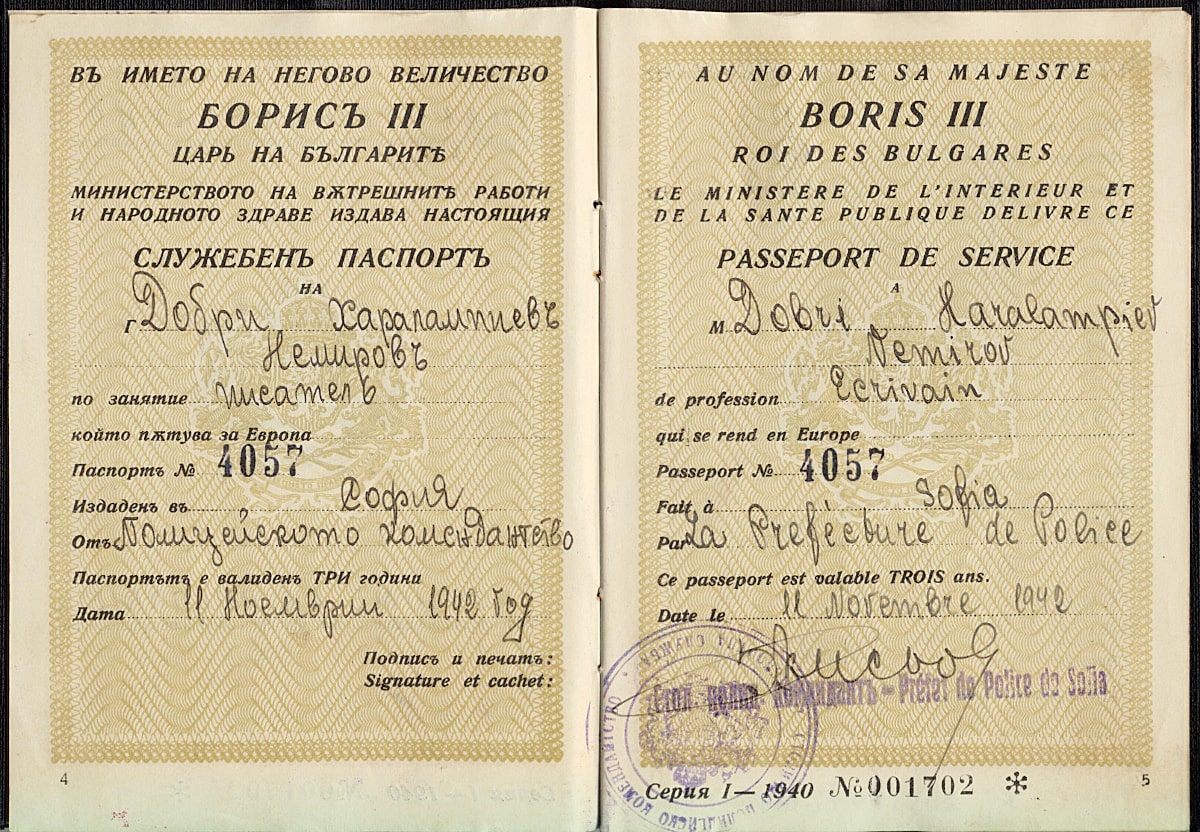 ВЪ ИМЕТО НА НЕГОВО ВЕЛИЧЕСТВО
БОРИСЪ III
ЦАРЬ НА БЪЛГАРИТѢ
МИНИСТЕРСТВОТО НА ВѪТРЕШНИТѢ РАБОТИ
И НАРОДНОТО ЗДРАВЕ ИЗДАВА НАСТОЯЩИЯ
СЛУЖЕБЕНЪ ПАСПОРТЪ
НА
Г Добри Харалампиевъ
Немировъ
по занятие писатель
който пѫтува за Европа
Паспортъ № 4057
Издаденъ въ София
Отъ Полицейското комендантство
Паспортътъ е валиденъ ТРИ години
Дата 11 Ноемврий 1942 год
Подписъ и печатъ:
Signature et cachet:
4
AU NOM DE SA MAJESTE
BORIS III
ROI DES BULGARES
LE MINISTERE DE L'INTERIEUR ET
DE LA SANTE PUBLIQUE DELIVRE CE
PASSEPORT DE SERVICE
A
M Dobri Haralampiev
Nemirov
de profession Ecrivain
qui se rend en Europe
Passeport № 4057
Fait à Sofia
Par La Préfecture de Police
Ce passeport est valable TROIS ans.
Date le 11 Novembre 1942
Стол. полиц. Комендантъ – Préfet de Police de Sofia
Серия I—1940 №001702 *
5